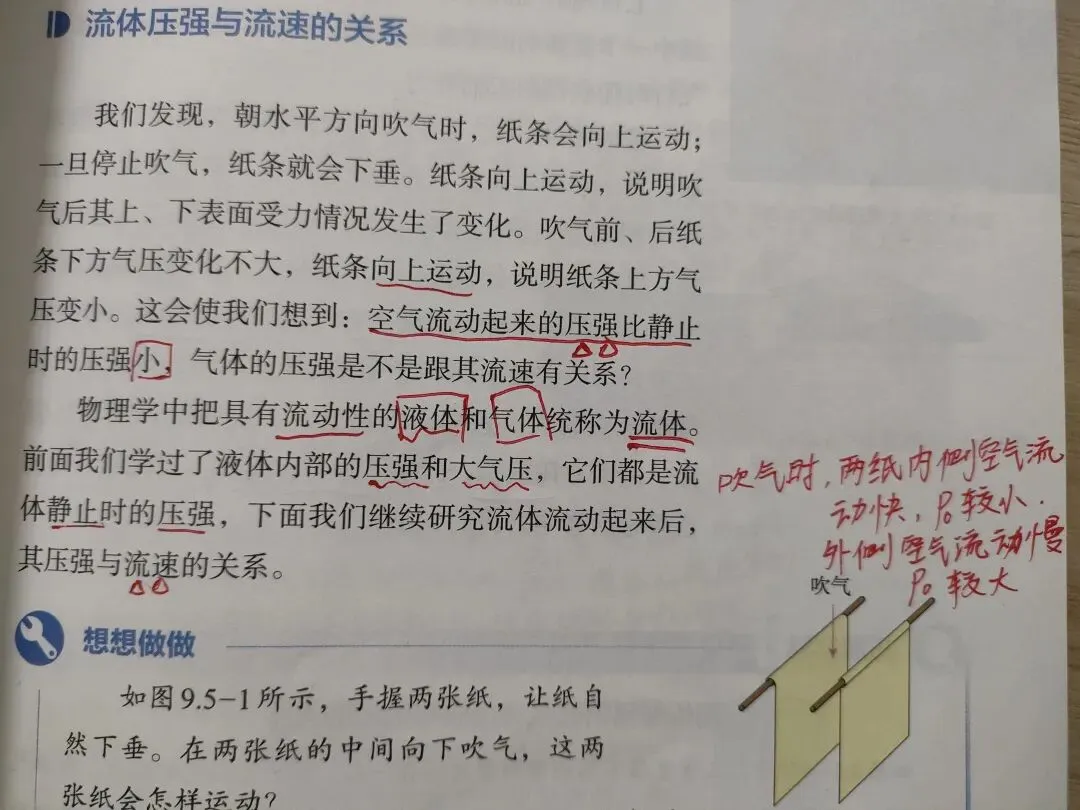 流体压强与流速的关系
我们发现，朝水平方向吹气时，纸条会向上运动；
一旦停止吹气，纸条就会下垂。纸条向上运动，说明吹
气后其上、下表面受力情况发生了变化。吹气前、后纸
条下方气压变化不大，纸条向上运动，说明纸条上方气
压变小。这会使我们想到：空气流动起来的压强比静止
时的压强小，气体的压强是不是跟其流速有关系？
物理学中把具有流动性的液体和气体统称为流体。
前面我们学过了液体内部的压强和大气压，它们都是流
体静止时的压强，下面我们继续研究流体流动起来后，
其压强与流速的关系。
吹气时，两纸内侧空气流
动快，P₀较小．
外侧空气流动慢
P₀较大
吹气
想想做做
如图9.5-1所示，手握两张纸，让纸自
然下垂。在两张纸的中间向下吹气，这两
张纸会怎样运动？